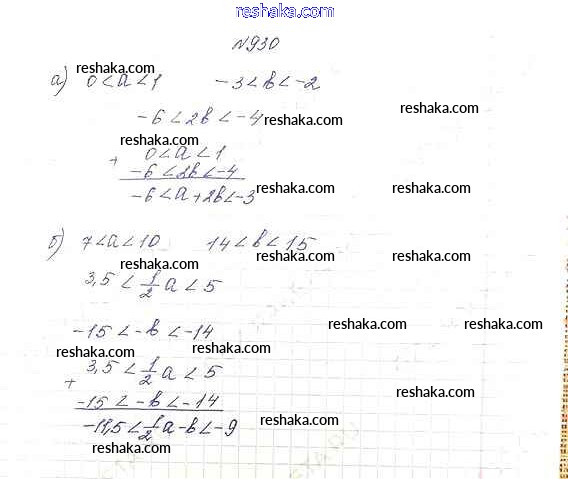 reshaka.com
N930
reshaka.com
а) 0<a<1 -3<b<-2
reshaka.com
-6<2b<-4 reshaka.com
reshaka.com
+ 0<a<1
-6<2b<-4
reshaka.com reshaka.com
-6<a+2b<-3
б) 7<a<10 14<b<15
reshaka.com reshaka.com
3,5<1/2a<5
reshaka.com
-15<-b<-14 reshaka.com
reshaka.com reshaka.com
+ 3,5<1/2a<5
-15<-b<-14 reshaka.com
reshaka.com
-11,5<1/2a-b<-9
reshaka.com